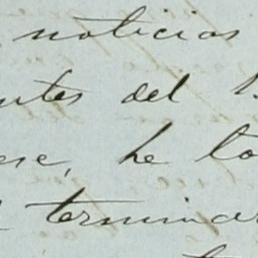 noticias
ntes del
ese, he to
terminar